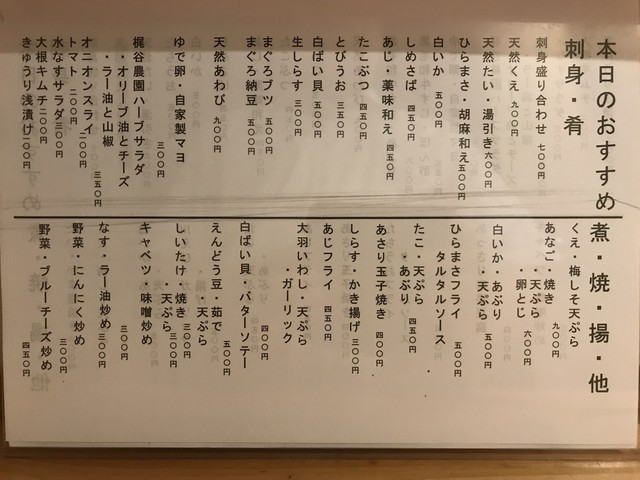 本日のおすすめ
刺身・肴
刺身盛り合わせ 七〇〇円
天然くえ 九〇〇円
天然たい・湯引き 六〇〇円
ひらまさ・胡麻和え 五〇〇円
白いか 五〇〇円
しめさば 四五〇円
あじ・薬味和え 四五〇円
たこぶつ 四五〇円
とびうお 三五〇円
白ばい貝 五〇〇円
生しらす 三〇〇円
まぐろブツ 五〇〇円
まぐろ納豆 五〇〇円
天然あわび 九〇〇円
ゆで卵・自家製マヨ 三〇〇円
梶谷農園ハーブサラダ
・オリーブ油とチーズ
・ラー油と山椒 三五〇円
オニオンスライ 二〇〇円
トマト 二〇〇円
水なすサラダ 三〇〇円
大根キムチ 二〇〇円
きゅうり浅漬け 二〇〇円
煮・焼・揚・他
くえ・梅しそ天ぷら 九〇〇円
あなご・焼き
・天ぷら
・卵とじ 六〇〇円
白いか・あぶり
・天ぷら 五〇〇円
ひらまさフライ
タルタルソース 五〇〇円
たこ・天ぷら
・あぶり 四五〇円
あさり玉子焼き 四〇〇円
しらす・かき揚げ 三〇〇円
あじフライ 四五〇円
大羽いわし・天ぷら
・ガーリック 四〇〇円
白ばい貝・バターソテー 五〇〇円
えんどう豆・茹で
・天ぷら 三〇〇円
しいたけ・焼き
・天ぷら 三〇〇円
キャベツ・味噌炒め 三〇〇円
なす・ラー油炒め 三〇〇円
野菜・にんにく炒め 三〇〇円
野菜・ブルーチーズ炒め 四五〇円